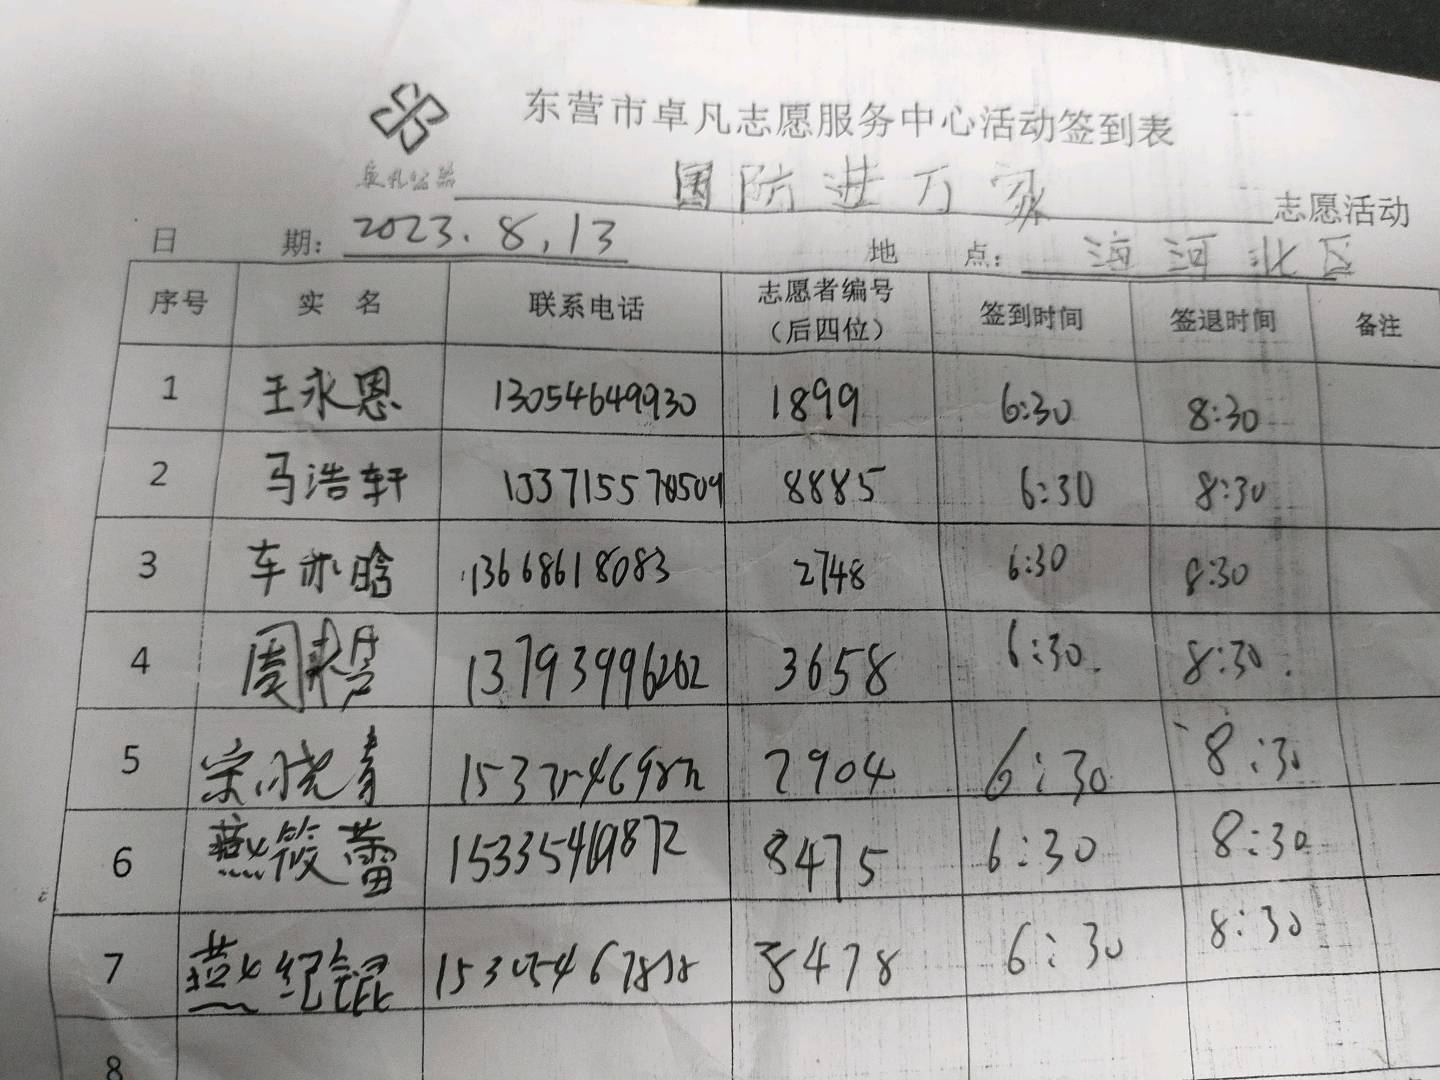 东营市卓凡志愿服务中心活动签到表
国防进万家 志愿活动
日 期: 2023.8.13 地 点: 海河北区
序号 实 名 联系电话 志愿者编号（后四位） 签到时间 签退时间 备注
1 王永恩 13054649930 1899 6:30 8:30
2 马浩轩 8885 6:30 8:30
3 车亦晗 13668618083 2748 6:30 8:30
4 周 13793996262 3658 6:30 8:30
5 宗晓青 7904 6:30 8:30
6 燕筱蕾 15335469872 8475 6:30 8:30
7 燕纪锟 8478 6:30 8:30
8